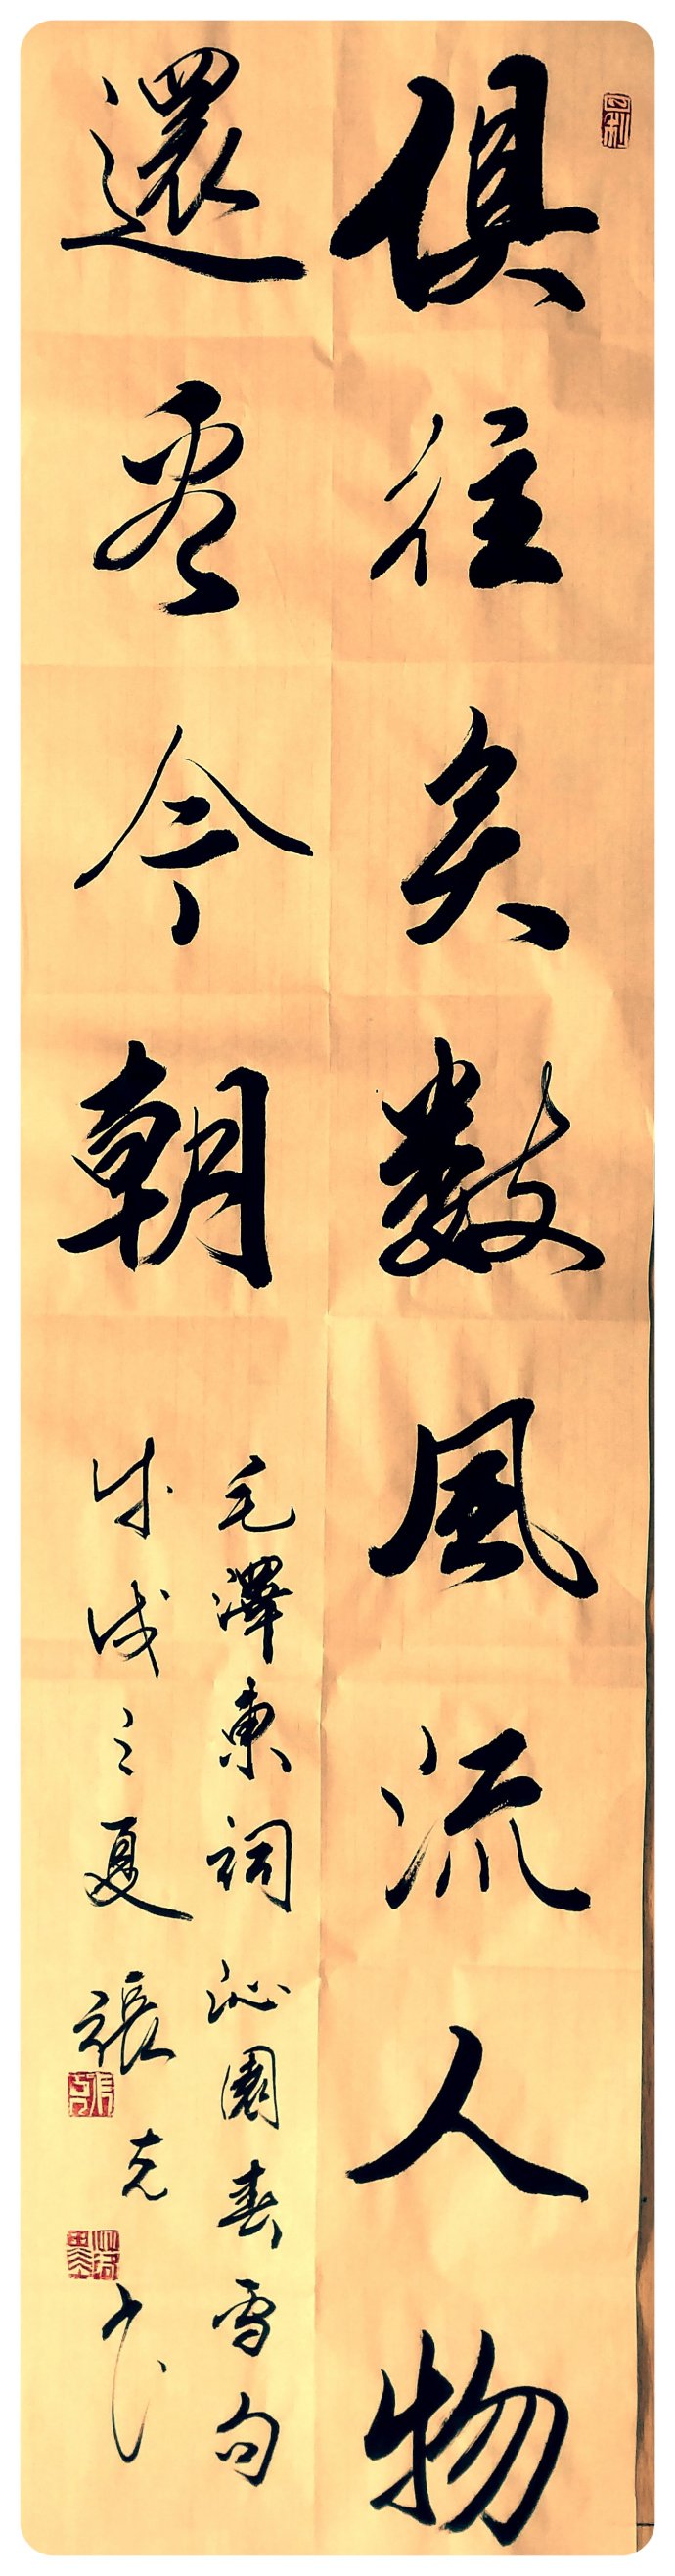 俱往矣数風流人物
還看今朝
毛澤東詞沁園春雪句
戊戌之夏張克书